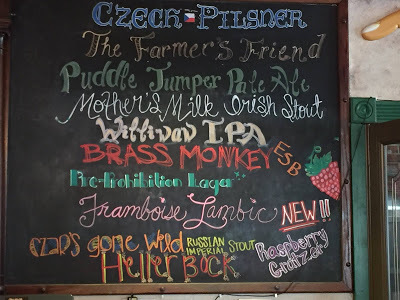 Czech Pilsner
The Farmer's Friend
Puddle Jumper Pale Ale
Mother's Milk Irish Stout
IPA
BRASS MONKEY ESB
Pre-Prohibition Lager
Framboise Lambic
NEW!!
Raspberry
CZAR'S gone Wild RUSSIAN IMPERIAL STOUT
Heller Bock